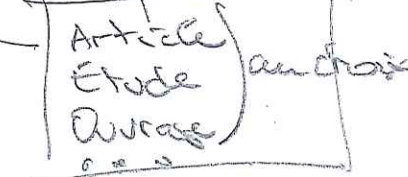 Article
Étude
Ouvrage
...
au choix